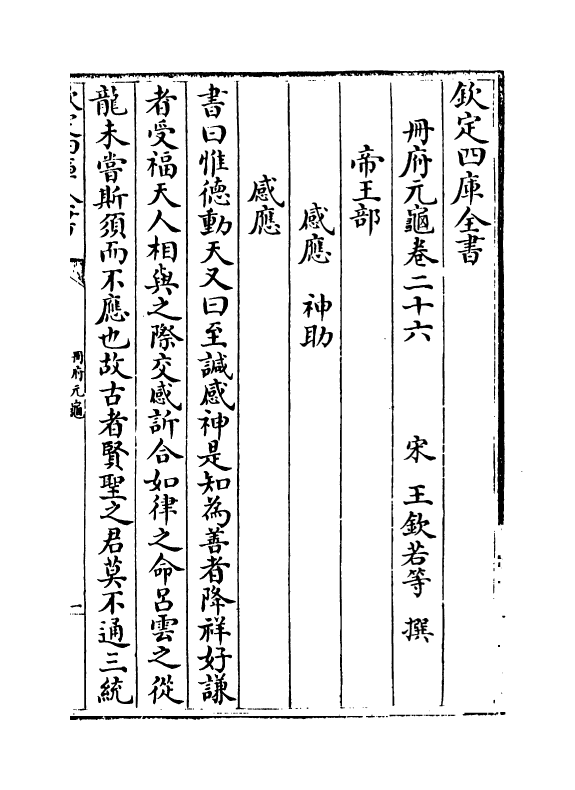 欽定四庫全書
冊府元龜卷二十六　宋　王欽若等　撰
帝王部
感應　神助
感應
書曰惟德動天又曰至諴感神是知為善者降祥好謙
者受福天人相與之際交感訢合如律之命呂雲之從
龍未嘗斯須而不應也故古者賢聖之君莫不通三統
冊府元龜
一